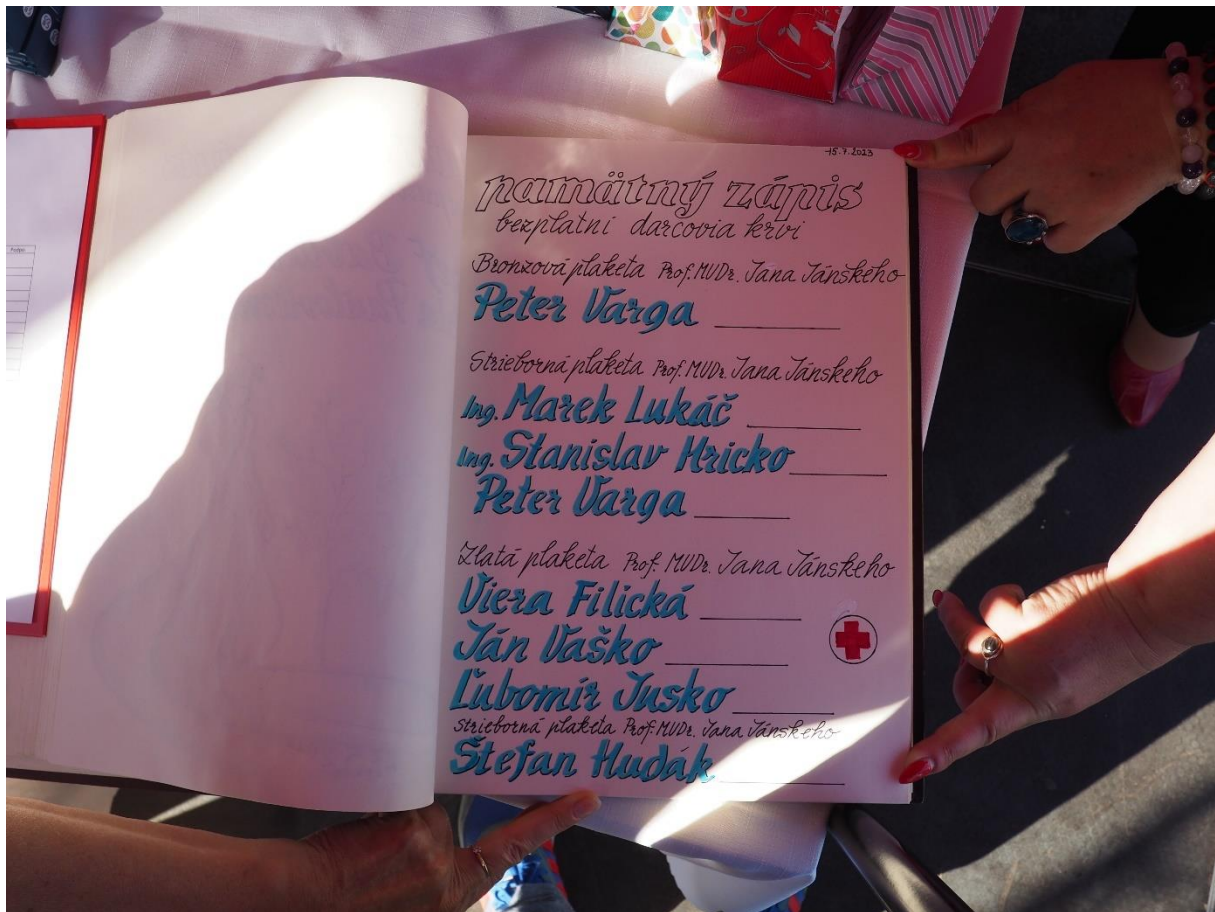 Podpis
15.7.2023
pamätný zápis
bezplatní darcovia krvi
Bronzová plaketa Prof. MUDr. Jana Jánskeho
Peter Varga
Strieborná plaketa Prof. MUDr. Jana Jánskeho
Ing. Marek Lukáč
Ing. Stanislav Hricko
Peter Varga
Zlatá plaketa Prof. MUDr. Jana Jánskeho
Viera Filická
Ján Vaško
Ľubomír Jusko
Strieborná plaketa Prof. MUDr. Jana Jánskeho
Štefan Hudák